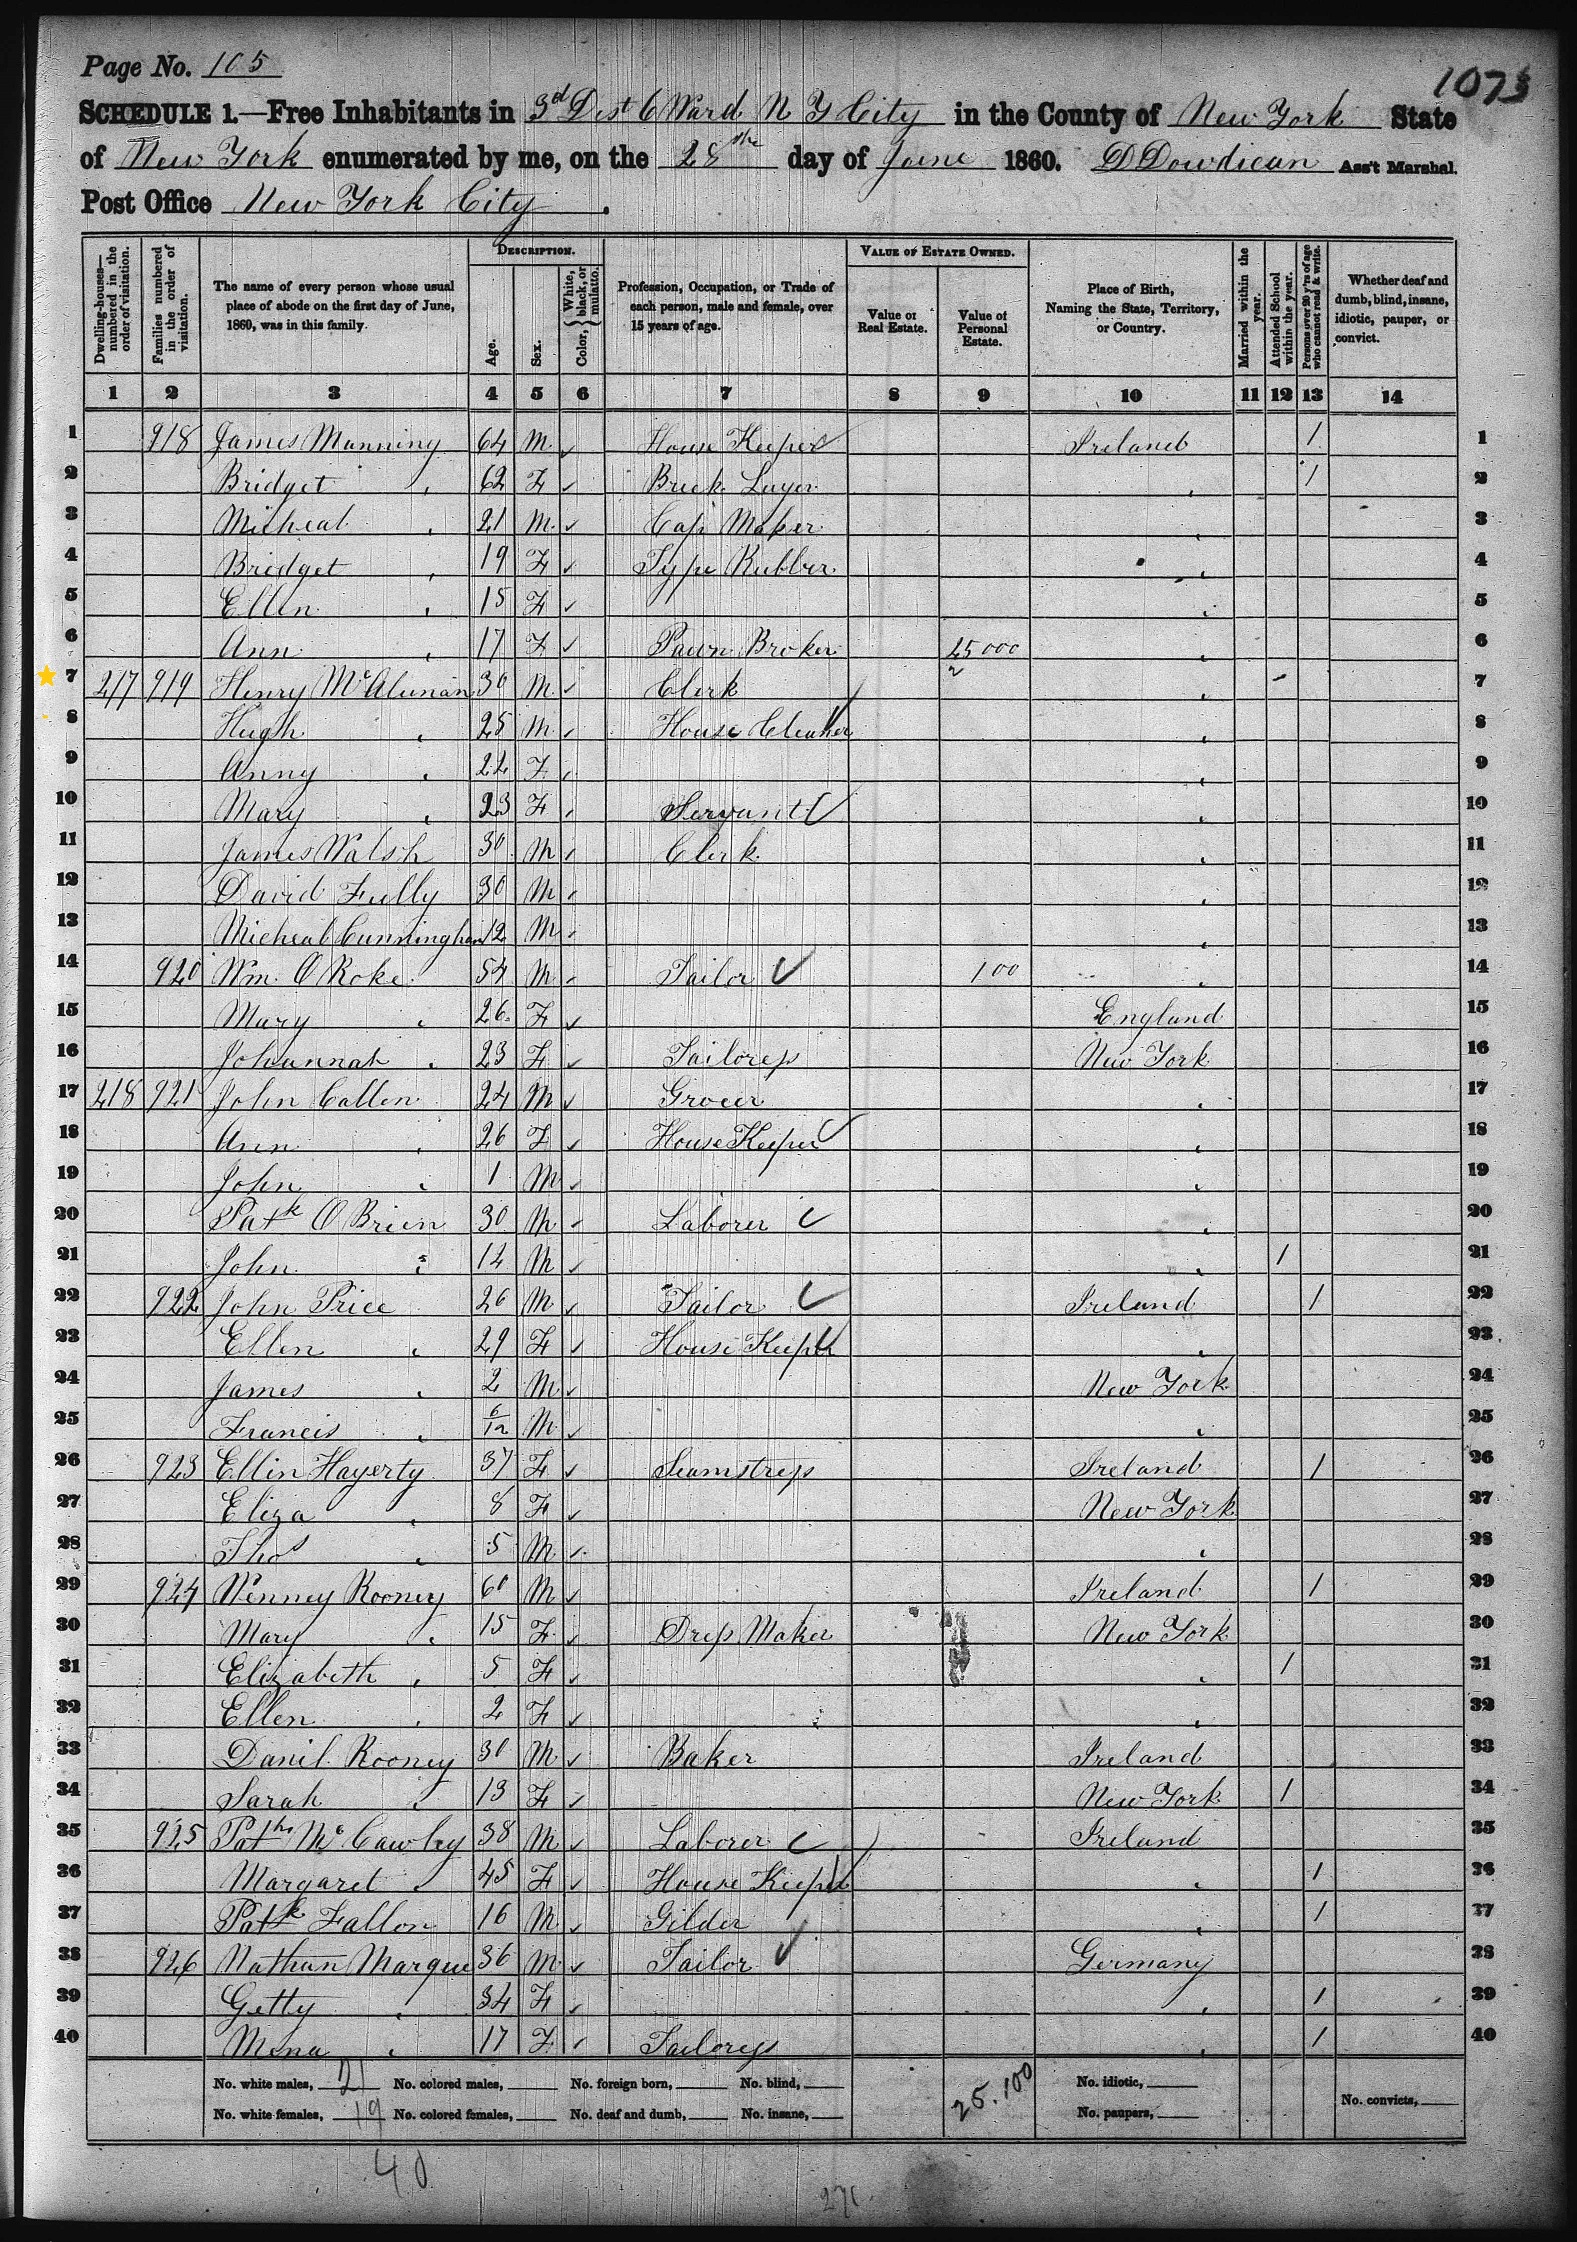 Page No. 105
1073
SCHEDULE 1.—Free Inhabitants in 3d Dist 6 Ward N Y City in the County of New York State
of New York enumerated by me, on the 28 day of June 1860. Ass't Marshal.
Post Office New York City.
Dwelling-houses—numbered in the order of visitation.
Families numbered in the order of visitation.
The name of every person whose usual place of abode on the first day of June, 1860, was in this family.
DESCRIPTION.
Age.
Sex.
Color, White, black, or mulatto.
Profession, Occupation, or Trade of each person, male and female, over 15 years of age.
VALUE OF ESTATE OWNED.
Value of Real Estate.
Value of Personal Estate.
Place of Birth, Naming the State, Territory, or Country.
Married within the year.
Attended School within the year.
Persons over 20 y'rs of age who cannot read & write.
Whether deaf and dumb, blind, insane, idiotic, pauper, or convict.
1 2 3 4 5 6 7 8 9 10 11 12 13 14
1 918 James Manning 64 M House Keeper Ireland 1 1
2 Bridget 62 F Brick Layer 1 2
3 Micheal 21 M Cap Maker 3
4 Bridget 19 F Type Rubber 4
5 Ellen 15 F 5
6 Ann 17 F Pawn Broker 25000 6
7 217 919 Henry 30 M Clerk 7
8 Hugh 25 M House 8
9 Anny 22 F 9
10 Mary 23 F Servant 10
11 James Walsh 30 M Clerk 11
12 David 30 M 12
13 Micheal Cunningham 12 M 13
14 920 Wm. O Roke 54 M Tailor 100 14
15 Mary 26 F England 15
16 Johannah 23 F Tailoress New York 16
17 218 921 John Callen 24 M Grocer 17
18 Ann 26 F House Keeper 18
19 John 1 M 19
20 Patk O Brien 30 M Laborer 20
21 John 14 M 1 21
22 922 John Price 26 M Tailor Ireland 1 22
23 Ellen 29 F House Keeper 23
24 James 2 M New York 24
25 Francis 6/12 M 25
26 923 Ellin Hagerty 37 F Seamstress Ireland 1 26
27 Eliza 8 F New York 27
28 Thos 5 M 28
29 924 Rooney 60 M Ireland 1 29
30 Mary 15 F Dress Maker New York 30
31 Elizabeth 5 F 1 31
32 Ellen 2 F 32
33 Danil Rooney 30 M Baker Ireland 33
34 Sarah 13 F New York 1 34
35 925 Mc Cawley 38 M Laborer Ireland 35
36 Margaret 45 F House Keeper 1 36
37 Patk Fallon 16 M Gilder 1 37
38 926 Nathan Marque 36 M Tailor Germany 38
39 Getty 34 F 1 39
40 Mena 17 F Tailoress 1 40
No. white males, 21 No. colored males, No. foreign born, No. blind, 25.100 No. idiotic,
No. white females, 19 No. colored females, No. deaf and dumb, No. insane, No. paupers, No. convicts,
40